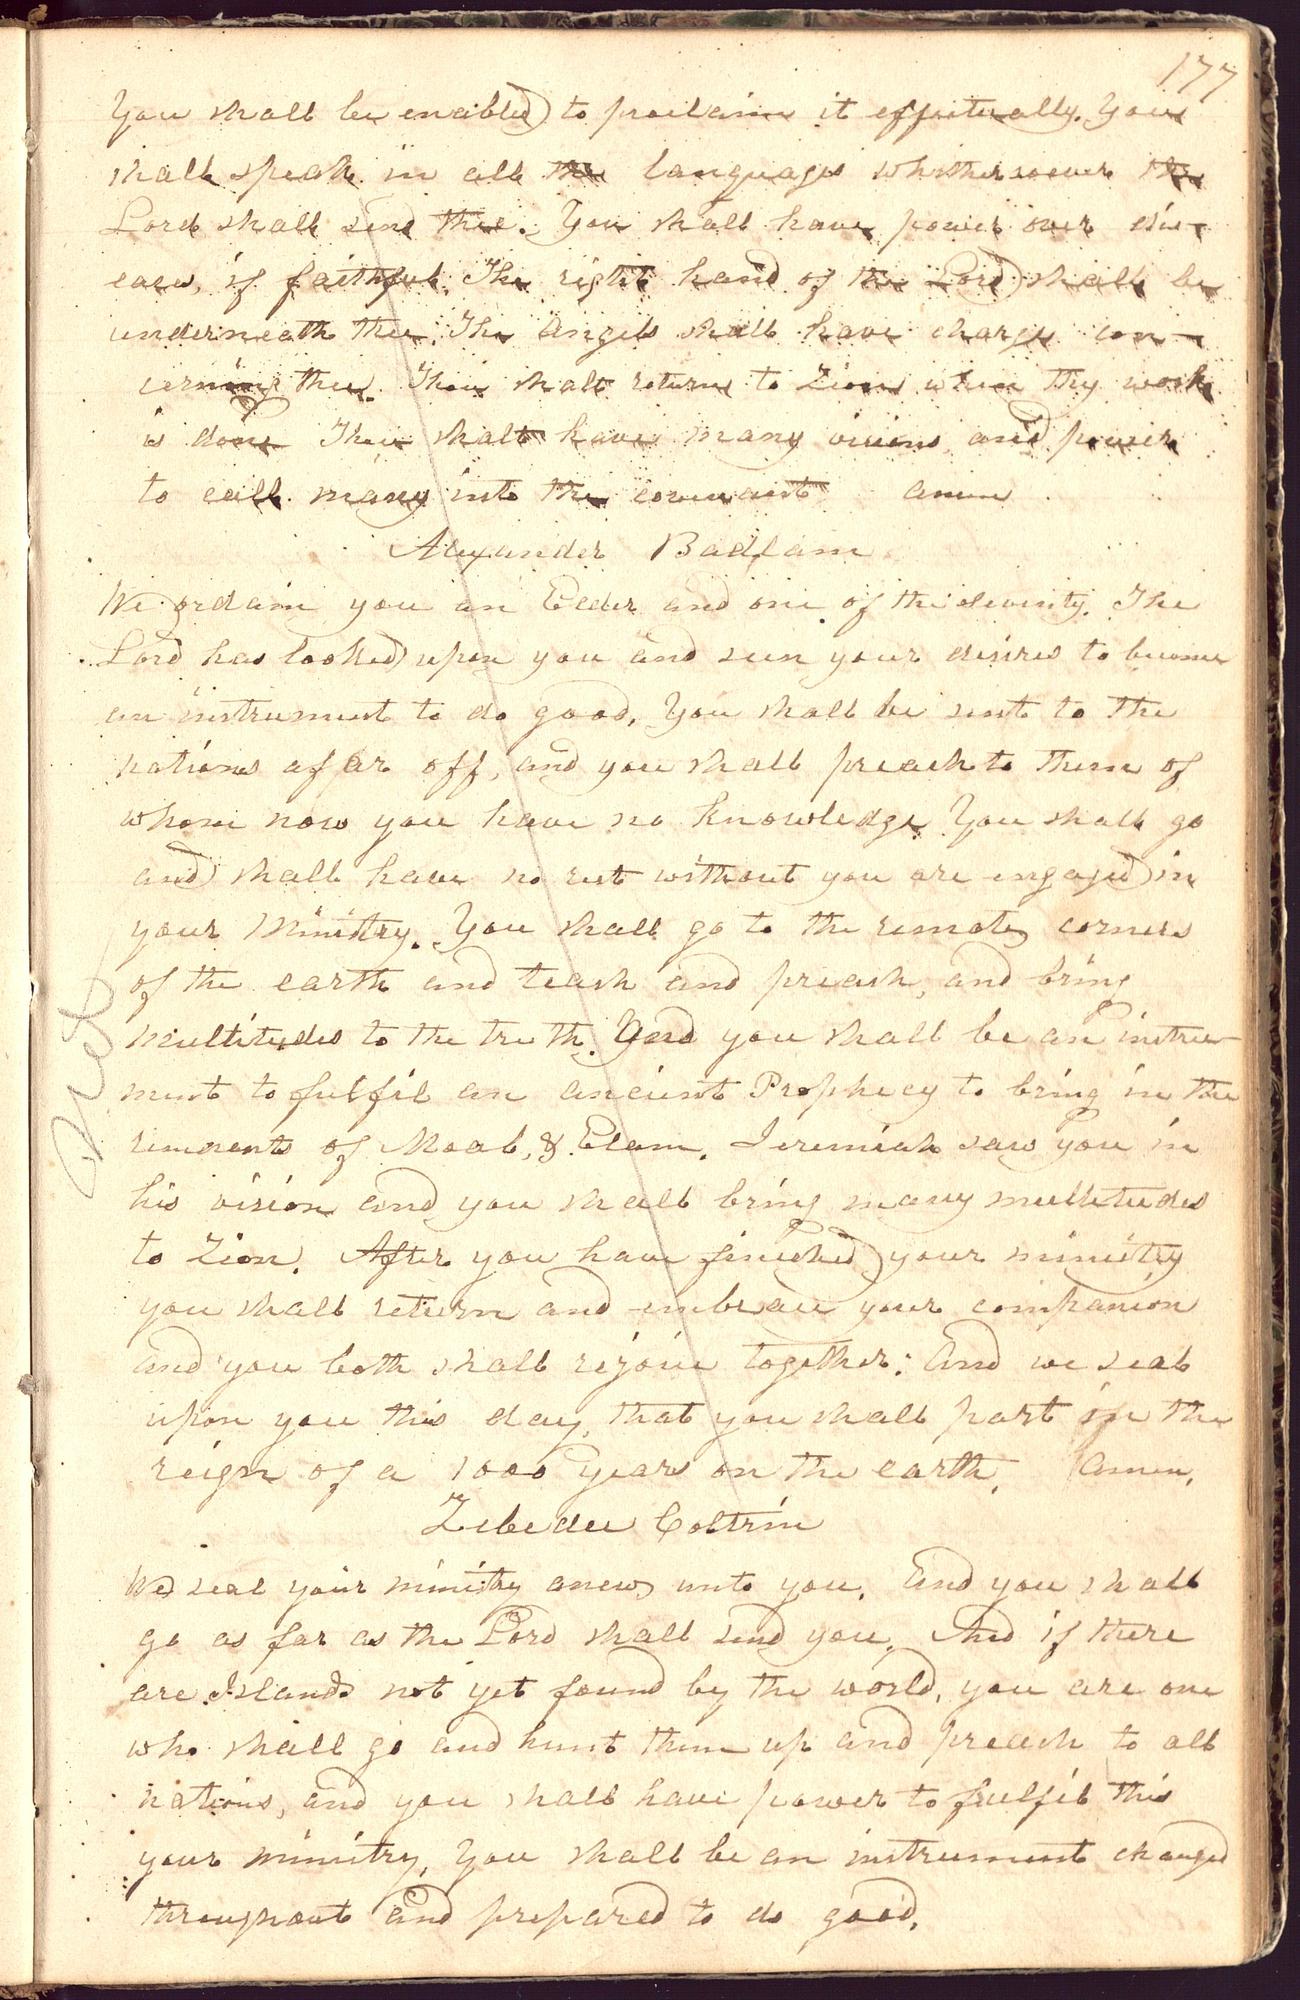 177
You shall be enabled to proclaim it effectually. You
shall speak in all the languages whithersoever the
Lord shall send thee. You shall have power over dis-
eases, if faithful. The right hand of the Lord shall be
underneath thee. The Angels shall have charge con-
cerning thee. Thou shalt return to Zion when thy work
is done Thou shalt have many visions and power
to call many into the covenant amen
Alexander Badlam
We ordain you an Elder and one of the seventy. The
Lord has looked upon you and seen your desires to become
an instrument to do good, You shall be sent to the
nations afar off, and you shall preach to them of
whom now you have no knowledge You shall go
and shall have no rest without you are engaged in
your Ministry. You shall go to the remote corners
of the earth and teach and preach, and bring
multitudes to the truth. And you shall be an instru-
ment to fulfil an ancient Prophecy to bring in the
remnants of Moab, & Elam. Jeremiah saw you in
his vision and you shall bring many multitudes
to Zion. After you have finished your ministry
you shall return and embrace your companion
and you both shall rejoice together: And we seal
upon you this day, that you shall part in the
reign of a 1000 years on the earth. Amen.
Zebedee Coltrin
We seal your ministry anew unto you. And you shall
go as far as the Lord shall send you. And if there
are Islands not yet found by the world, you are one
who shall go and hunt them up and preach to all
nations, and you shall have power to fulfil this
your ministry, You shall be an instrument changed
throughout and prepared to do good.